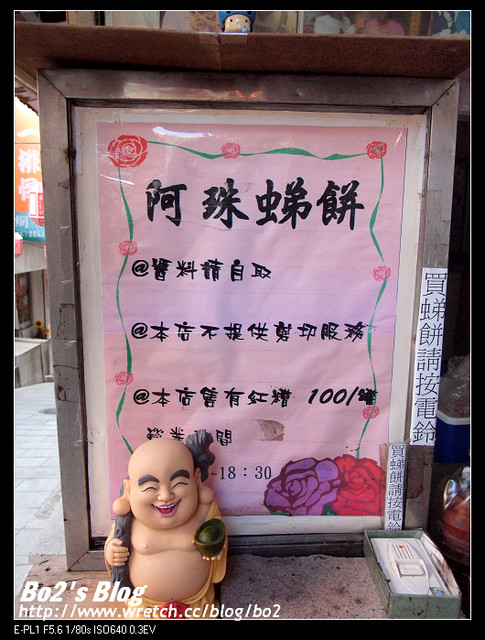 阿珠蛦餅
@醬料請自取
@本店不提供剪切服務
@本店售有紅糟 100/罐
營業時間
-18:30
買蛦餅請按電鈴
買蛦餅請按電鈴
Bo2's Blog
http://www.wretch.cc/blog/bo2
E-PL1 F5.6 1/80s ISO640 0.3EV